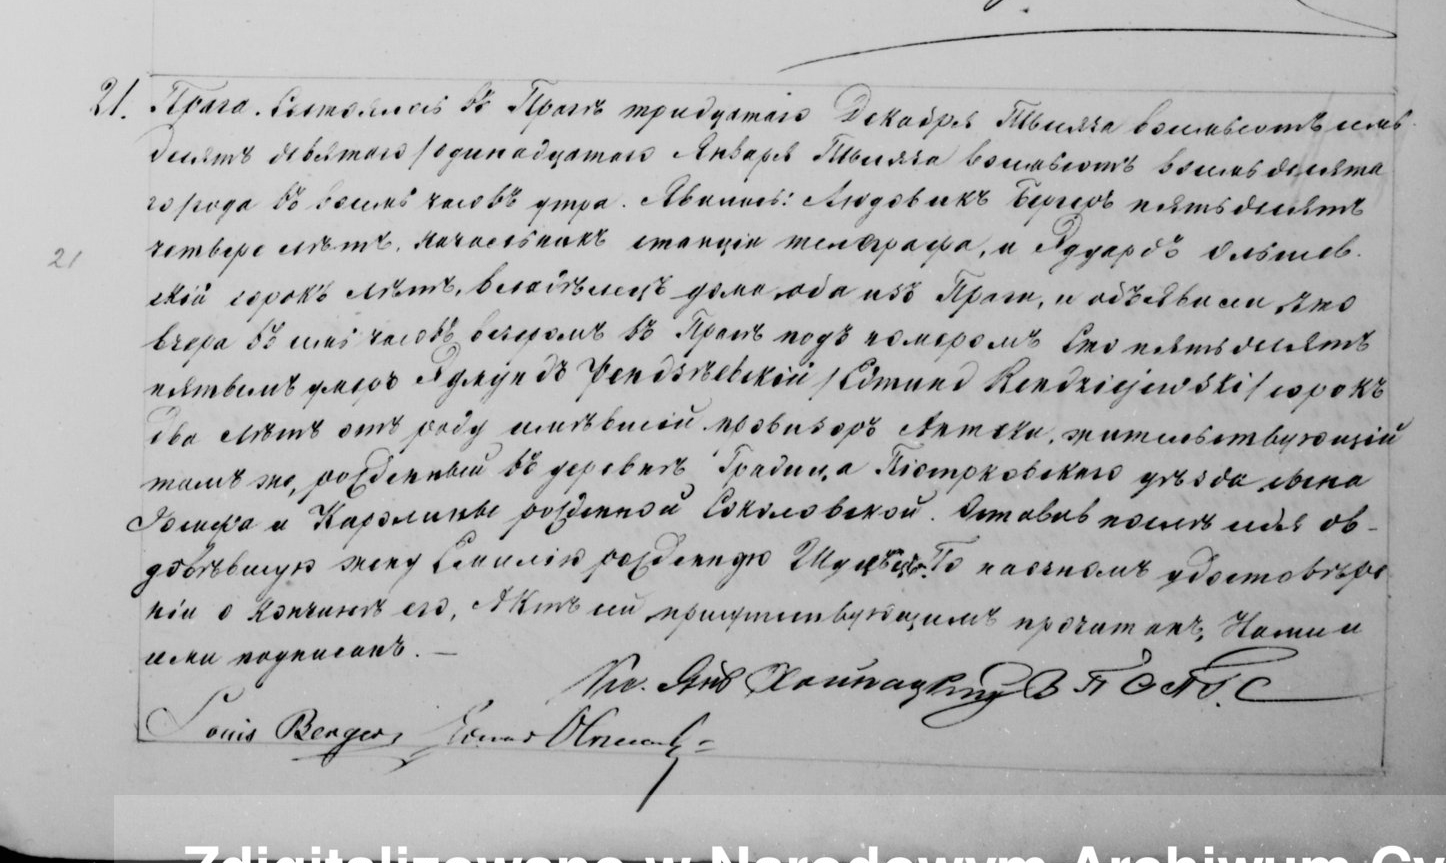 21. Прага. Состоялось въ Прагѣ тридцатаго Декабря Тысяча восемьсотъ семь
десятъ девятаго /одинадцатаго Января Тысяча восемьсотъ восемьдесята
го/года въ восемь часовъ утра. Явились: Людовикъ Бергеръ пятьдесятъ
четыре лѣтъ, начальникъ станціи телеграфа, и Эдуардъ Ольшев
21
скій сорокъ лѣтъ, владѣлецъ дома, оба изъ Праги, и объявили, что
вчера въ семь часовъ вечеромъ въ Прагѣ подъ номеромъ Сто пятьдесятъ
пятымъ умеръ Эдмундъ Рендзѣевскій /Edmund Rendziejewski/ сорокъ
два лѣтъ отъ роду имѣвшій провизоръ Аптеки, жительствующій
тамъ же, рожденный въ деревнѣ Градица Піотрковскаго уѣзда, сына
Іосифа и Каролины рожденной Соколовской. Оставивъ послѣ себя ов-
довѣвшую жену Емилію рожденную По наочномъ удостовѣре
ніи о кончинѣ его, Актъ сей присутствующимъ прочитанъ, Нами и
ими подписанъ. —
Кс. Янъ
Louis Berger Edward
Zdigitalizowano w Narodowym Archiwum Cy